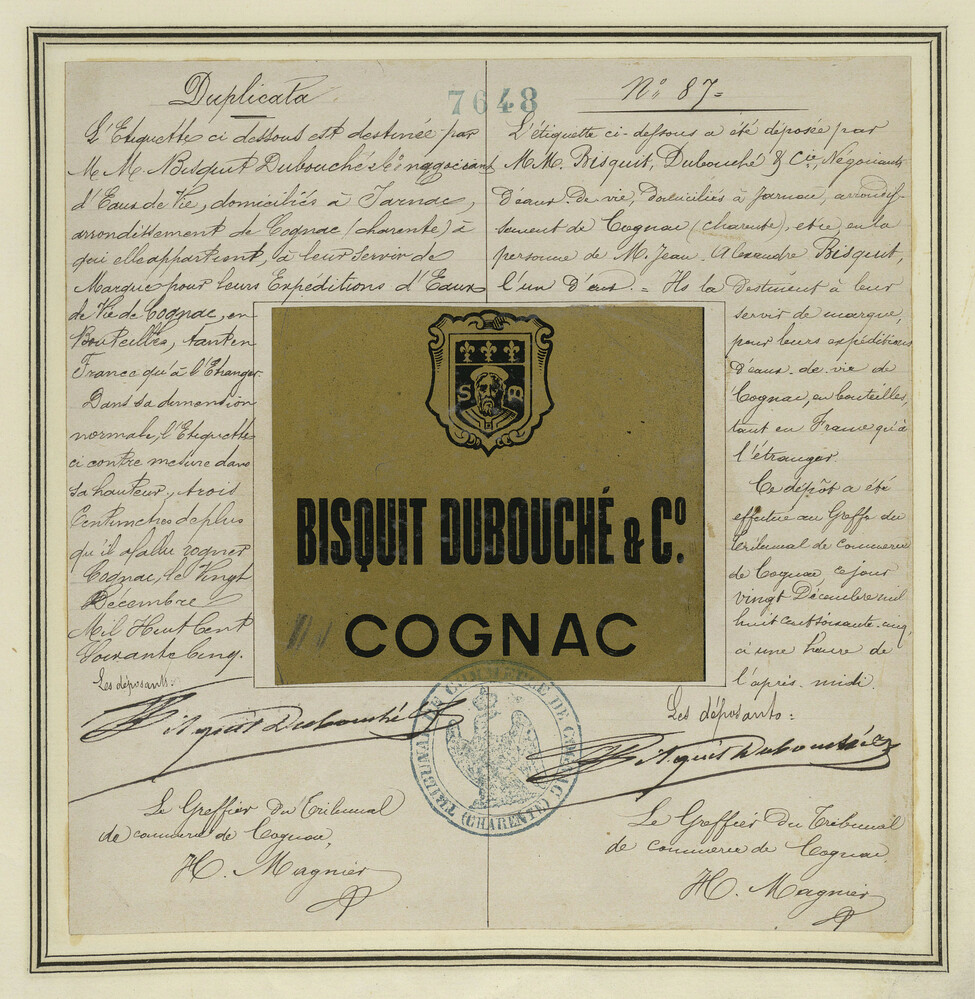 Duplicata
L'Etiquette ci dessous est destinée par
M.M. Bisquit Dubouché & Cie négociants
d'Eaux de Vie, domiciliés à Jarnac,
arrondissement de Cognac (charente) à
qui elle appartient, à leur servir de
Marque pour leurs Expéditions d'Eaux
de Vie de Cognac, en
Bouteilles, tant en
France qu'à l'Etranger.
Dans sa dimension
normale, l'Etiquette
ci contre mesure dans
sa hauteur, trois
Centimètres de plus
qu'il a fallu rogner
Cognac, le Vingt
Décembre
Mil Huit Cent
Soixante Cinq.
Les déposants:
Bisquit Dubouché
Le Greffier du Tribunal
de commerce de Cognac,
H. Magnier
7648
No 87=
L'étiquette ci-dessous a été déposée par
M.M. Bisquit, Dubouché & Cie, Négociants
d'eaux-de-vie, domiciliés à Jarnac, arrondis-
sement de Cognac (charente), et ce, en la
personne de M. Jean-Alexandre Bisquit,
l'un d'eux. = Ils la destinent à leur
servir de marque,
pour leurs expéditions
d'eaux-de-vie de
Cognac, en bouteilles,
tant en France qu'à
l'étranger.
Ce dépôt a été
effectué au Greffe du
tribunal de commerce
de Cognac, ce jour
vingt Décembre mil
huit cent soixante-cinq,
à une heure de
l'après-midi.
Les déposants:
Bisquit Dubouché
Le Greffier du Tribunal
de commerce de Cognac
H. Magnier
S B
BISQUIT DUBOUCHÉ & Co.
COGNAC
TRIBUNAL DE COMMERCE DE COGNAC
(CHARENTE)